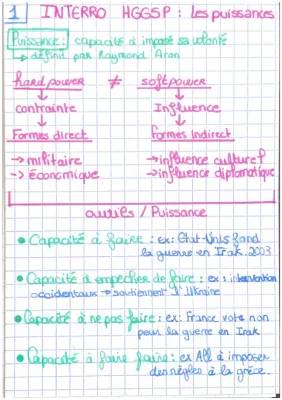 1 INTERRO HGGSP : les puissances
Puissance : capacité à imposé sa volonté
→ définit par Raymond Aron
hard power ≠ soft power
contrainte Influence
Formes direct Formes Indirect
→ militaire → influence culturel
→ économique → influence diplomatique
/ Puissance
• Capacité à faire : ex : Etat-Unis fond
la guerre en Irak. 2003
• Capacité à empecher de faire : ex : intervention
occidentaux → soutiennent l'Ukraine
• Capacité à ne pas faire : ex : France vote non
pour la guerre en Irak
• Capacité à faire faire : ex All à imposer
des règles à la grèce.